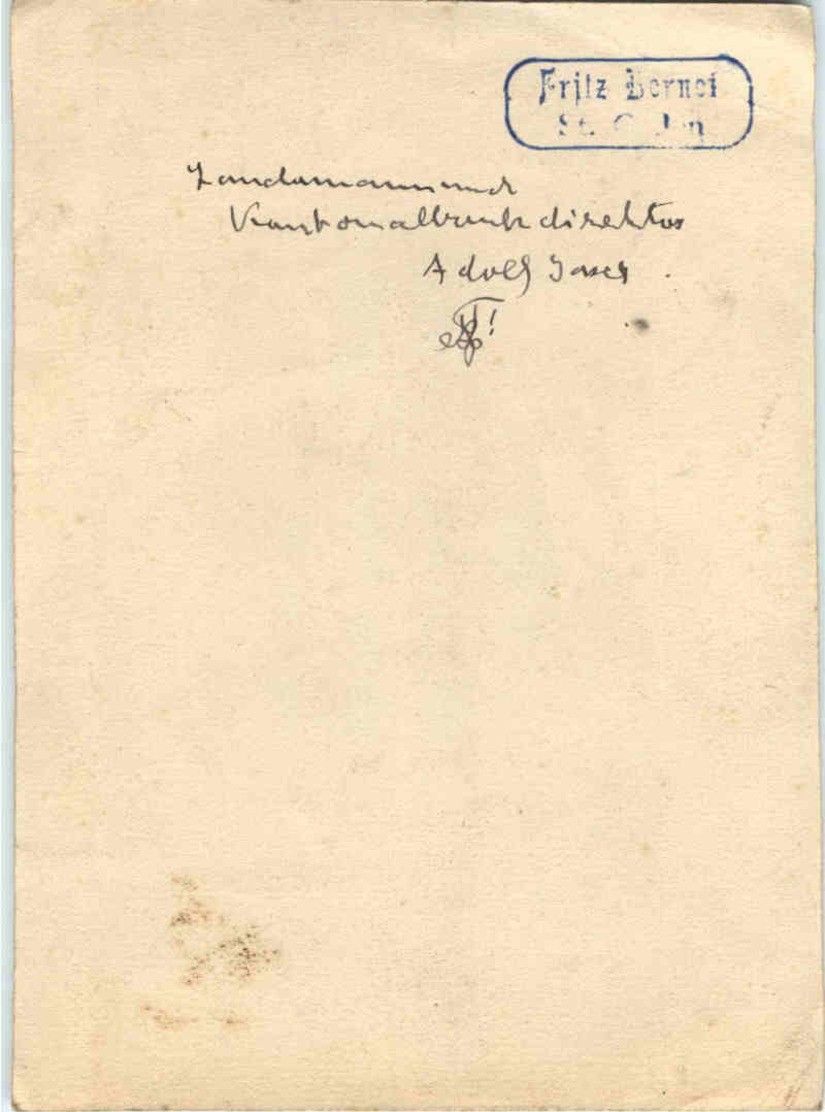 Fritz Bernet
St. G
Landammann und
Kantonalbankdirektor
Adolf